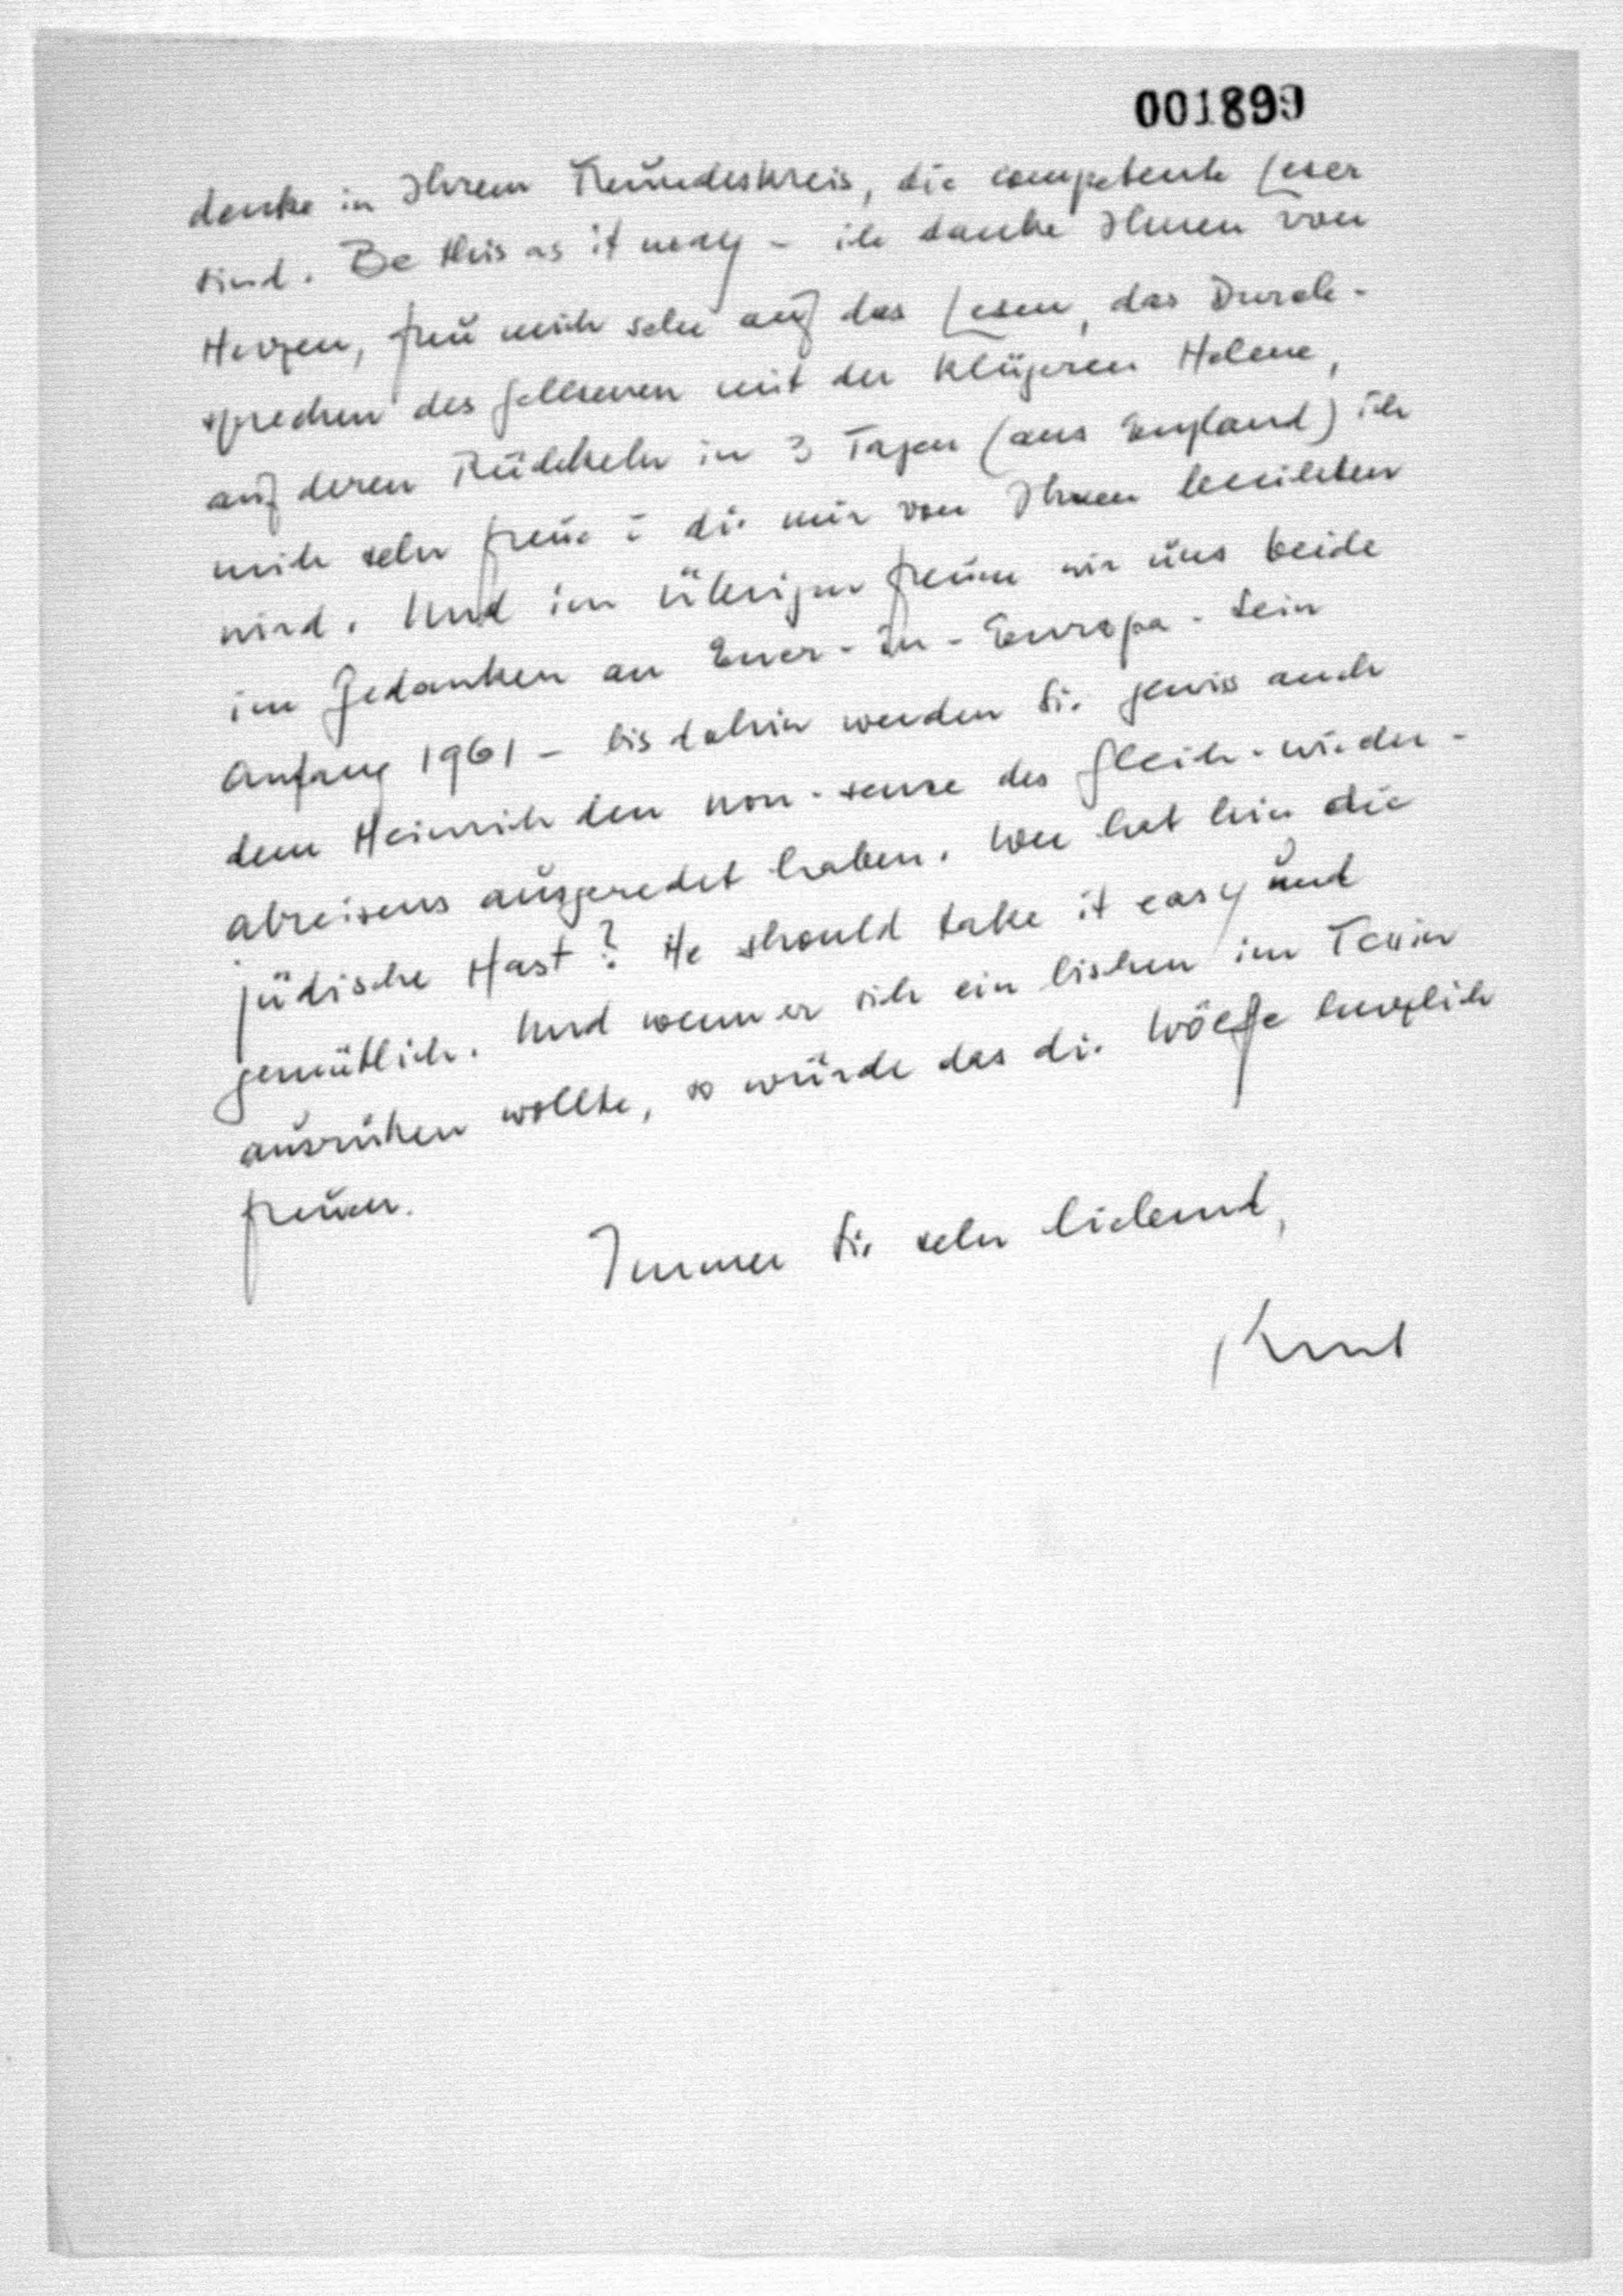 001899
denke in Ihrem Freundeskreis, die competente Leser
sind. Be this as it may – ich danke Ihnen von
Herzen, freu mich sehr auf das Lesen, das Durch-
sprechen des Gelesenen mit der klügeren Helene,
auf deren Rückkehr in 3 Tagen (aus England) ich
mich sehr freue & die mir von Ihnen berichten
wird. Und im übrigen freuen wir uns beide
im Gedanken an Euer-In-Europa-Sein
Anfang 1961 – bis dahin werden Sie gewiss auch
dem Heinrich den non-sense des Gleich-wieder-
abreisens ausgeredet haben. Wer hat hier die
jüdische Hast? He should take it easy und
gemütlich. Und wenn er sich ein bischen im Tessin
ausruhen wollte, so würde das die Wölffe herzlich
freuen.
Immer Sie sehr liebend,
Kurt